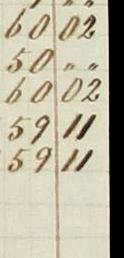 60 02
50 " "
60 02
59 11
59 11